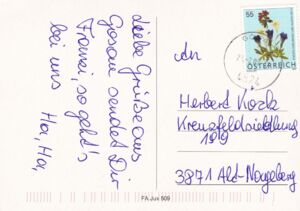 Liebe Grüße aus
Gosau sendet Dir
Franzi, so geht's
bei uns Ha, Ha,
55
ÖSTERREICH
An
Herbert Koch
Kreuzfeldsiedlung
199
3871 Alt-Nagelberg
FA Jux 509